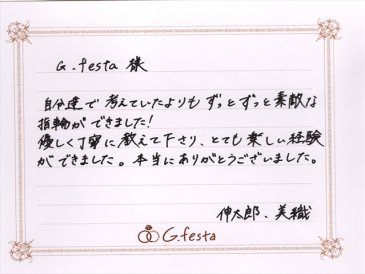 G.festa 様
自分達で考えていたよりもずっとずっと素敵な
指輪ができました！
優しく丁寧に教えて下さり、とても楽しい経験
ができました。本当にありがとうございました。
伸太郎、美織
G.festa